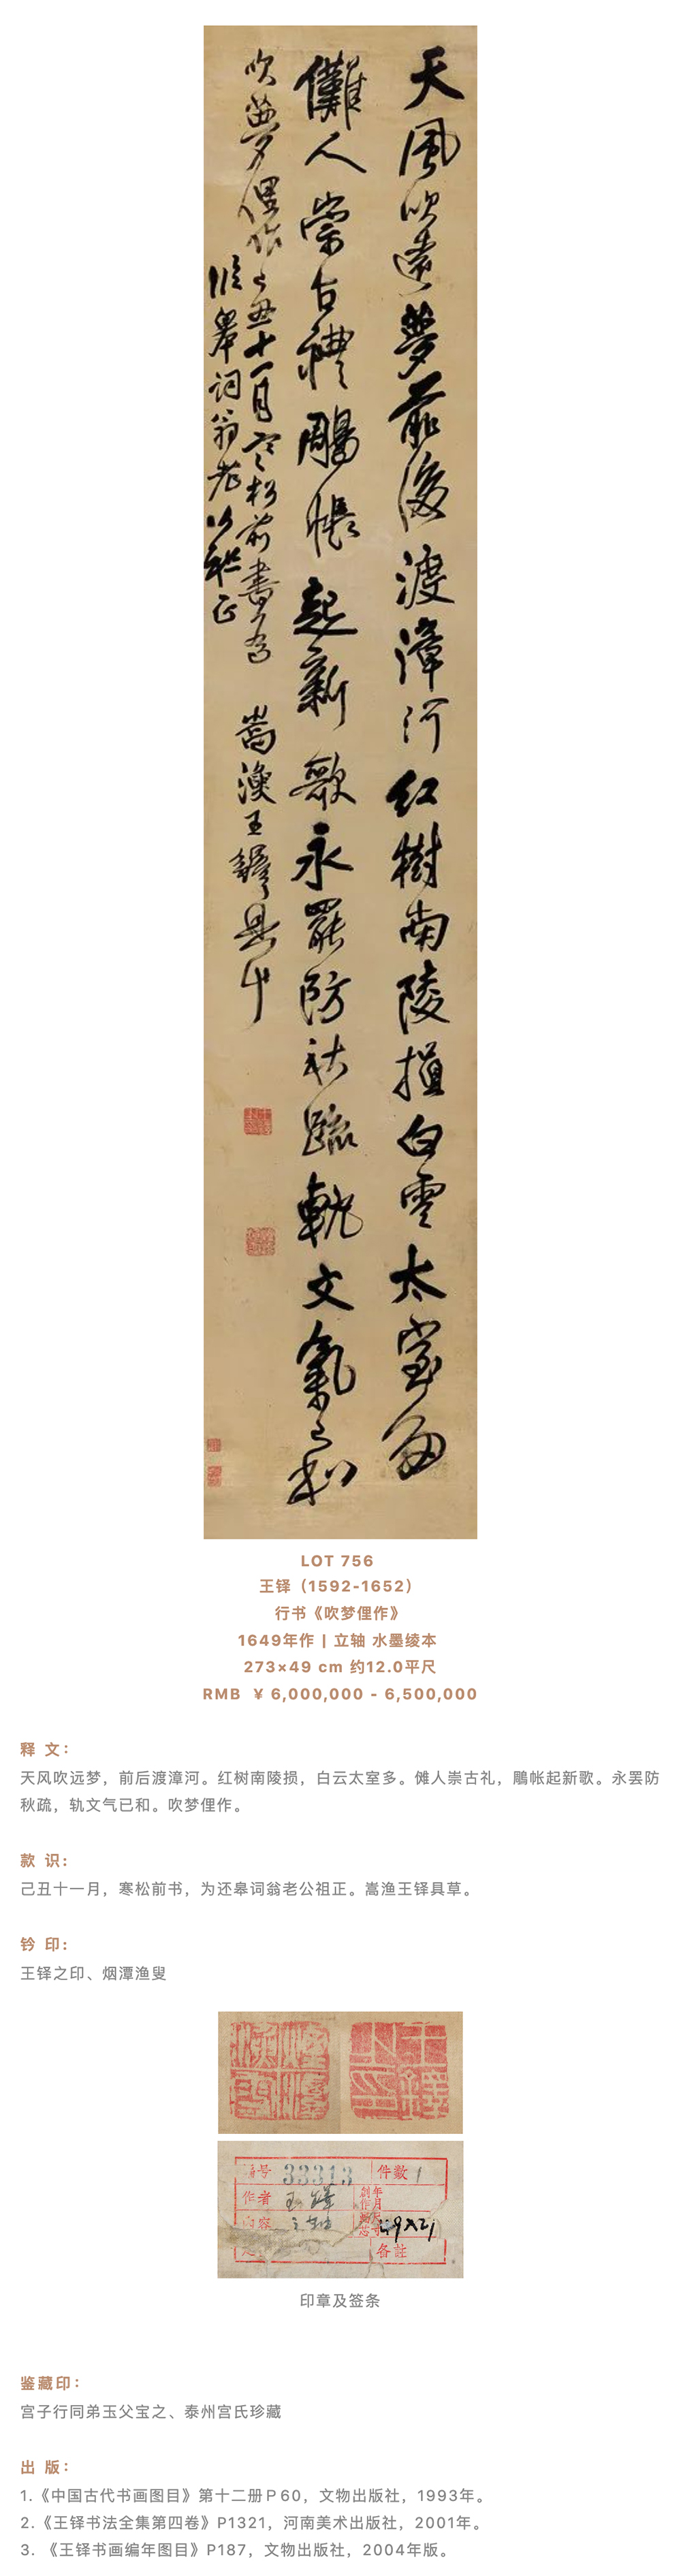 天風吹遠夢前後渡漳河紅樹南陵損白雲太室多
儺人崇古禮鵰帳起新歌永罷防秋疏軌文氣已和
吹夢俚作己丑十一月寒松前書為 嵩漁王鐸具草
還皋詞翁老公祖正
LOT 756
王铎（1592-1652）
行书《吹梦俚作》
1649年作 | 立轴 水墨绫本
273×49 cm 约12.0平尺
RMB ¥ 6,000,000 - 6,500,000
释 文：
天风吹远梦，前后渡漳河。红树南陵损，白云太室多。傩人崇古礼，鵰帐起新歌。永罢防
秋疏，轨文气已和。吹梦俚作。
款 识：
己丑十一月，寒松前书，为还皋词翁老公祖正。嵩渔王铎具草。
钤 印：
王铎之印、烟潭渔叟
王鐸之印
編号 33313 件数 1
作者 王鐸 創作年月
内容 立轴
备註
印章及签条
鉴藏印：
宫子行同弟玉父宝之、泰州宫氏珍藏
出 版：
1.《中国古代书画图目》第十二册P60，文物出版社，1993年。
2.《王铎书法全集第四卷》P1321，河南美术出版社，2001年。
3. 《王铎书画编年图目》P187，文物出版社，2004年版。